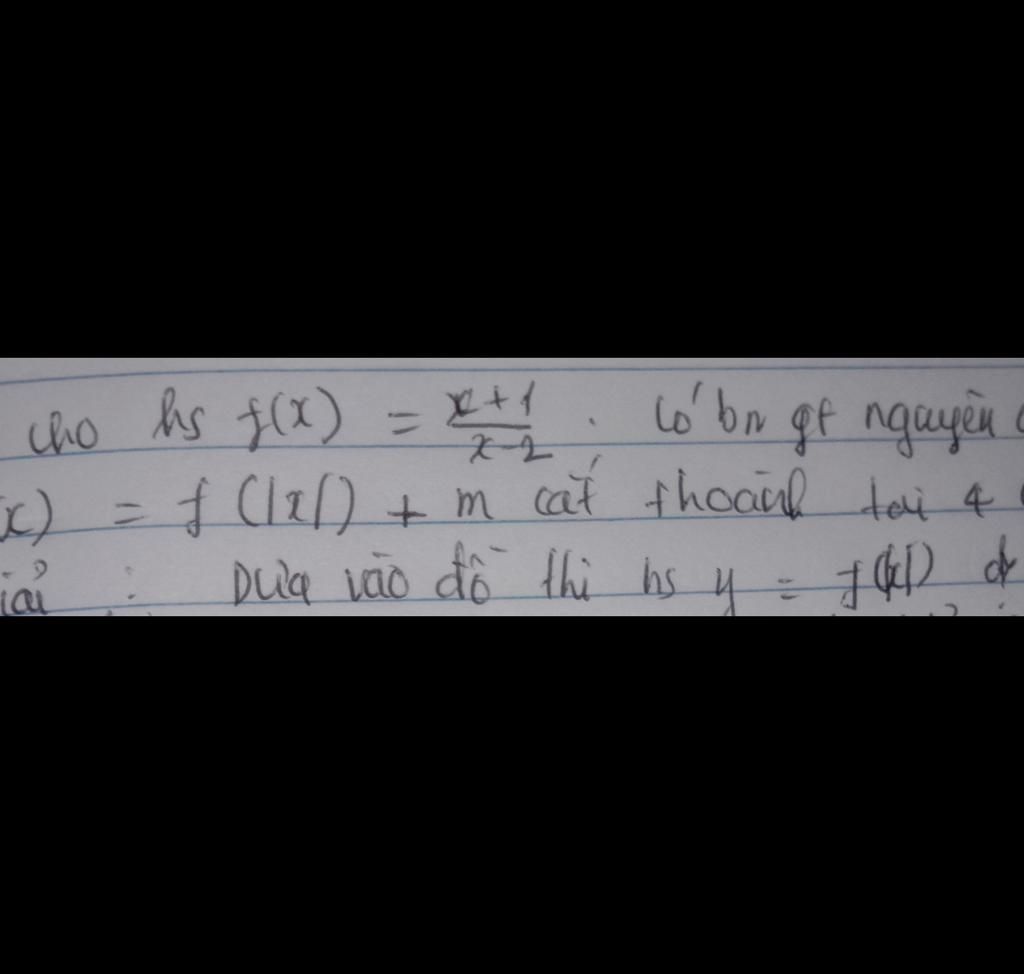 cho hs f(x) = x+1/x-2 . Có bn gt nguyên
x) = f(|x|) + m cắt thoành tại 4
iải : Dựa vào đồ thị hs y = f(|x|)